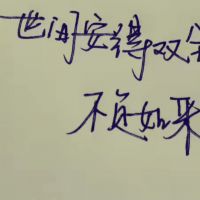 世间安得双
不负如来